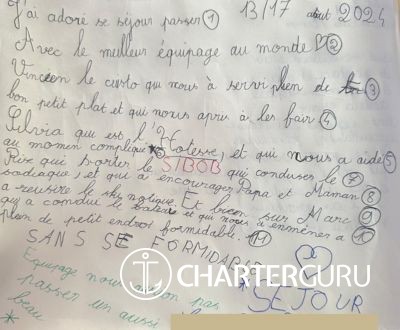 J'ai adoré se séjour passer ①
13/17 août 2024
Avec le meilleur équipage au monde ♡②
Vinceen le cuisto qui nous à servi plein de ③
bon petit plat et qui nous appris à les fair ④
Silvia qui est l'Hotesse, et qui nous a aidé ⑤
au momen complique ⑥
Rise qui border le STBOB qui conduser le ⑦
sodiaque, et qui a encourager Papa et Maman ⑧
a reusire le sky notique. Et bien sur Marc ⑨
qui a conduie le bateau et qui nous à enmener a ⑩
plein de petit endrot formidable. ⑪
SANS SE FORMIDABLE
CHARTERGURU
Equipage nous auron pas
passer un aussi
* SEJOUR
beau
*